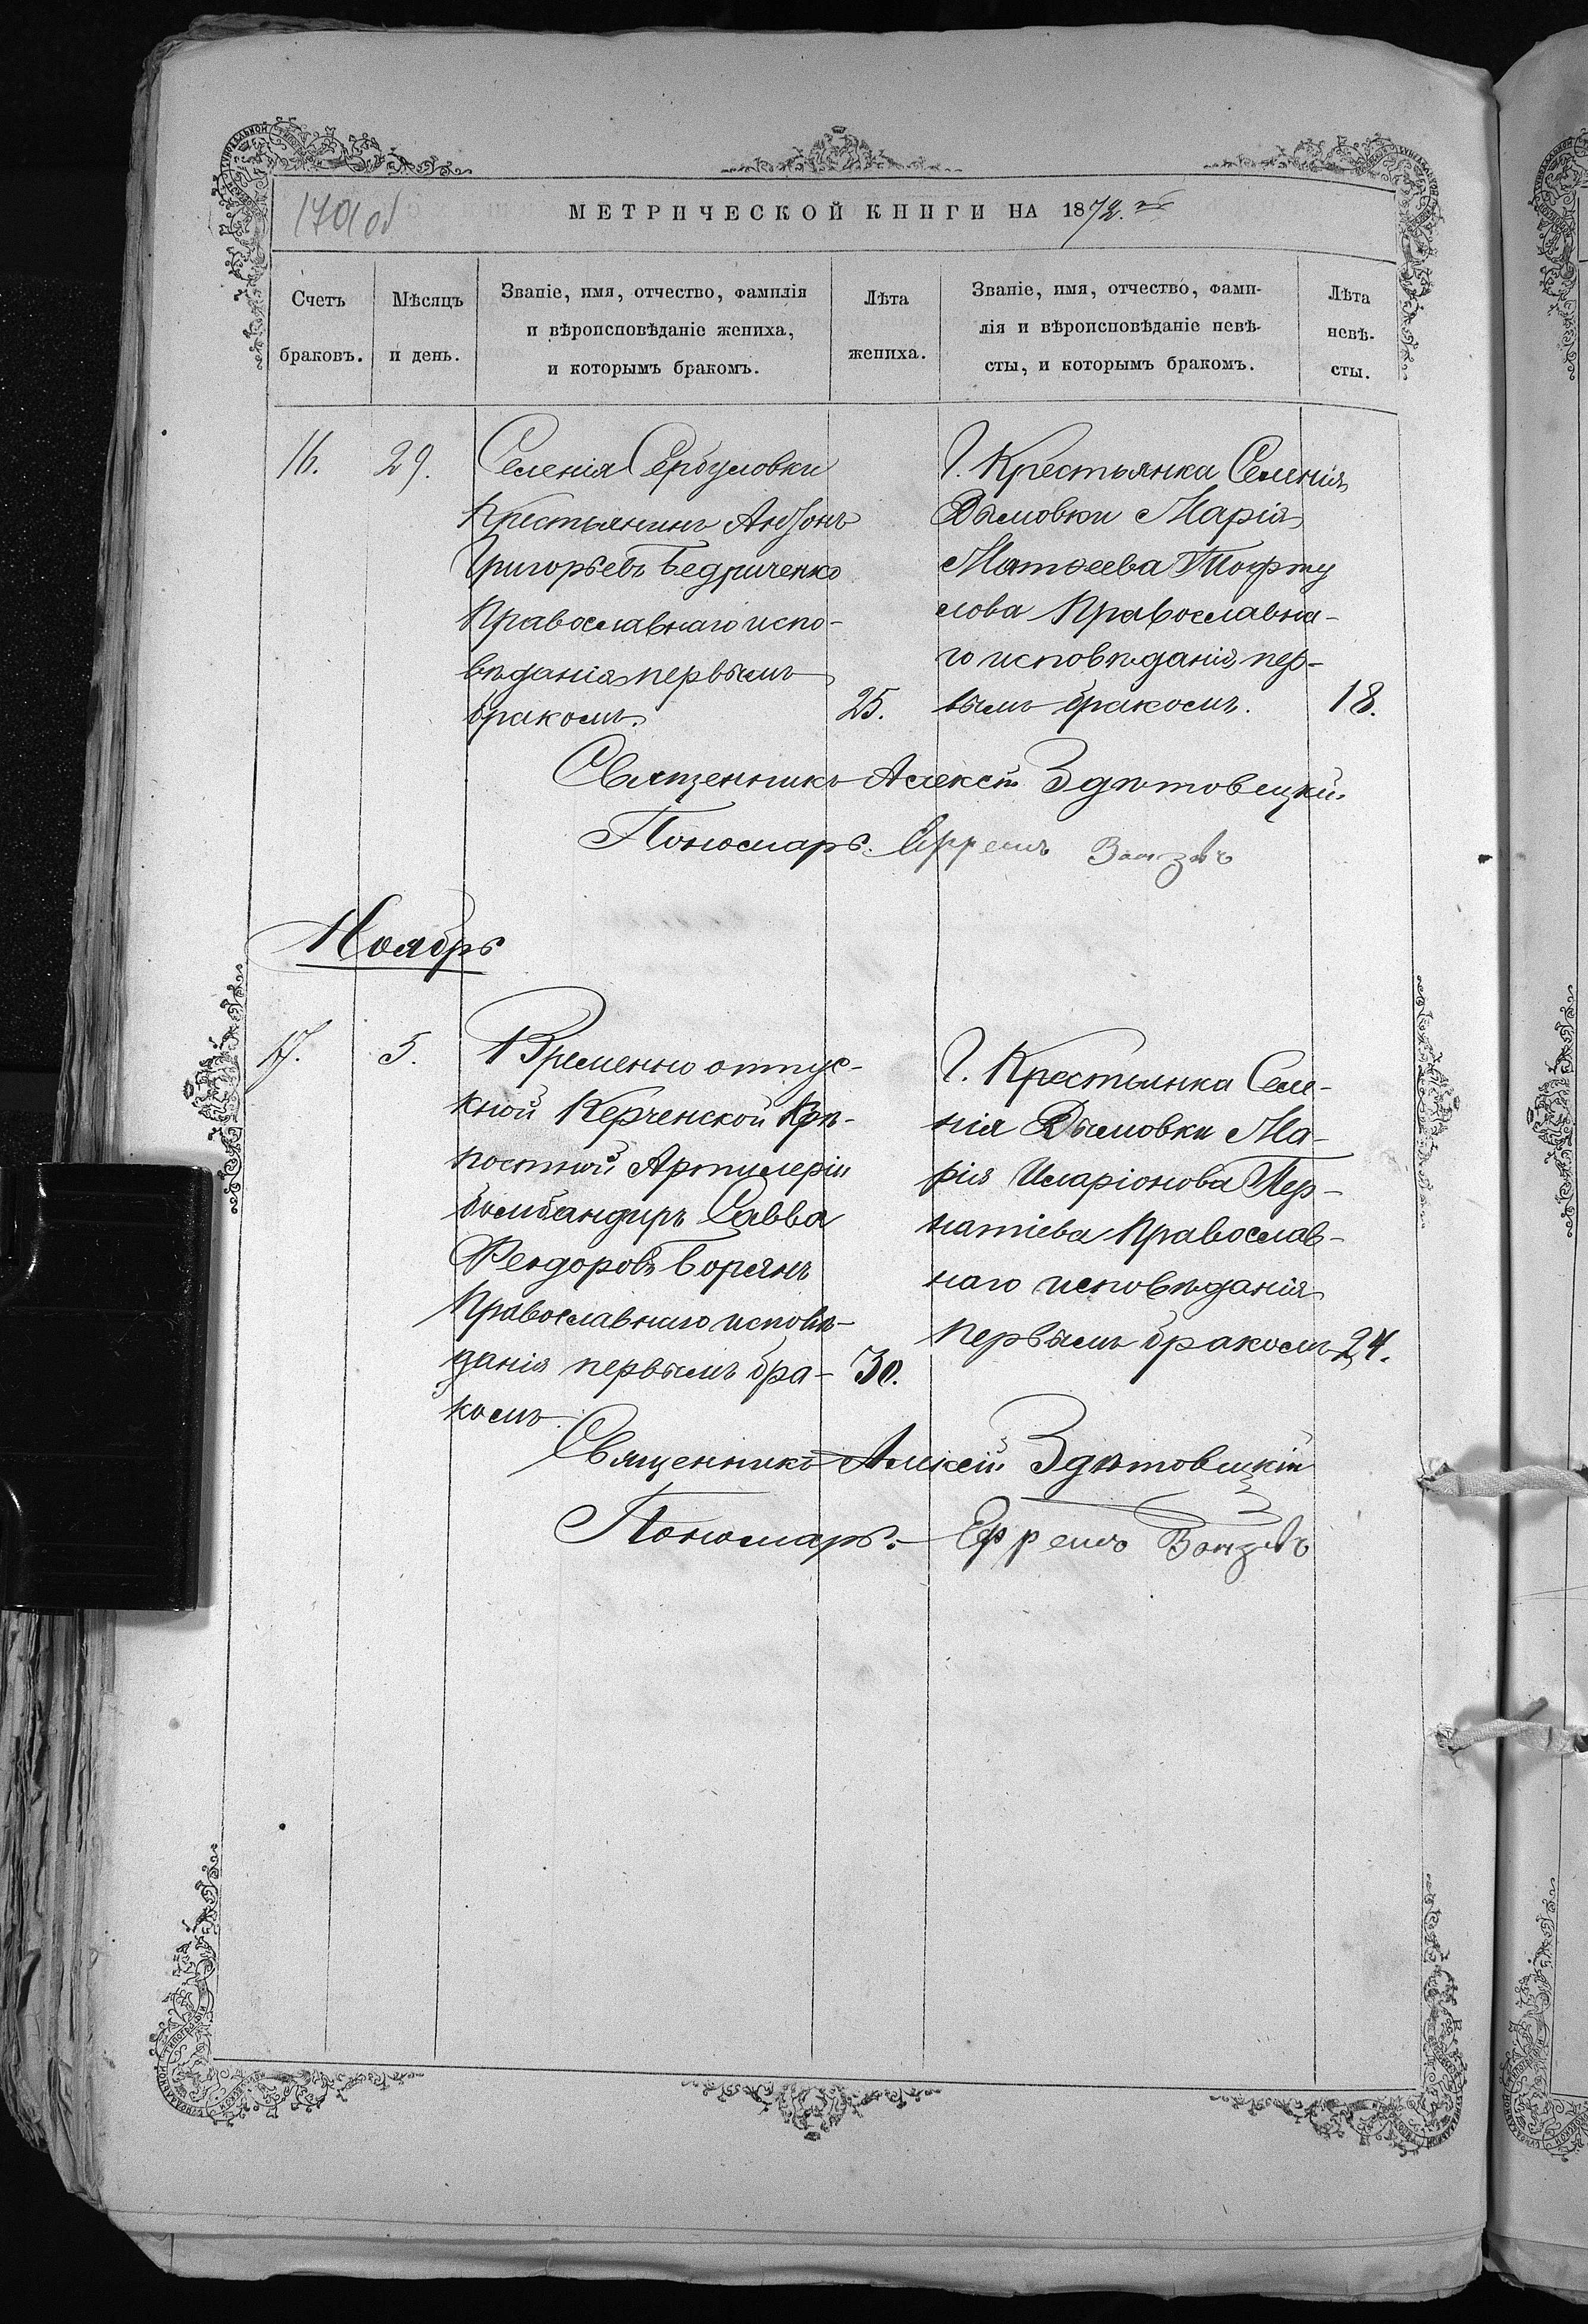 179 об
МЕТРИЧЕСКОЙ КНИГИ НА 1872.й
Счетъ браковъ.
Мѣсяцъ и день.
Званіе, имя, отчество, фамилія
и вѣроисповѣданіе жениха,
и которымъ бракомъ.
Лѣта жениха.
Званіе, имя, отчество, фами-
лія и вѣроисповѣданіе невѣ-
сты, и которымъ бракомъ.
Лѣта невѣ-
сты.
16.
29.
Селенія Сербуловки
Крестьянинъ Антонъ
Григорьевъ Бедриченко
Православнаго испо-
вѣданія первымъ
бракомъ.
25.
Крестьянка Селенія
Дымовки Марія
Матѳеева
лова Православна-
го исповѣданія пер-
вымъ бракомъ.
18.
Священникъ Алексѣй Здѣтовецкій
Пономарь Ефремъ
Ноябрь
17.
5.
Временно отпус-
кной Керченской Крѣ-
постной Артилеріи
бомбандиръ Савва
Феодоровъ Борсянъ
Православнаго исповѣ-
данія первымъ бра-
комъ
30.
Крестьянка Селе-
нія Дымовки Ма-
рія Иларіонова Пер-
натіева Православ-
наго исповѣданія
первымъ бракомъ
24.
Священникъ Алексѣй Здѣтовецкій
Пономарь Ефремъ